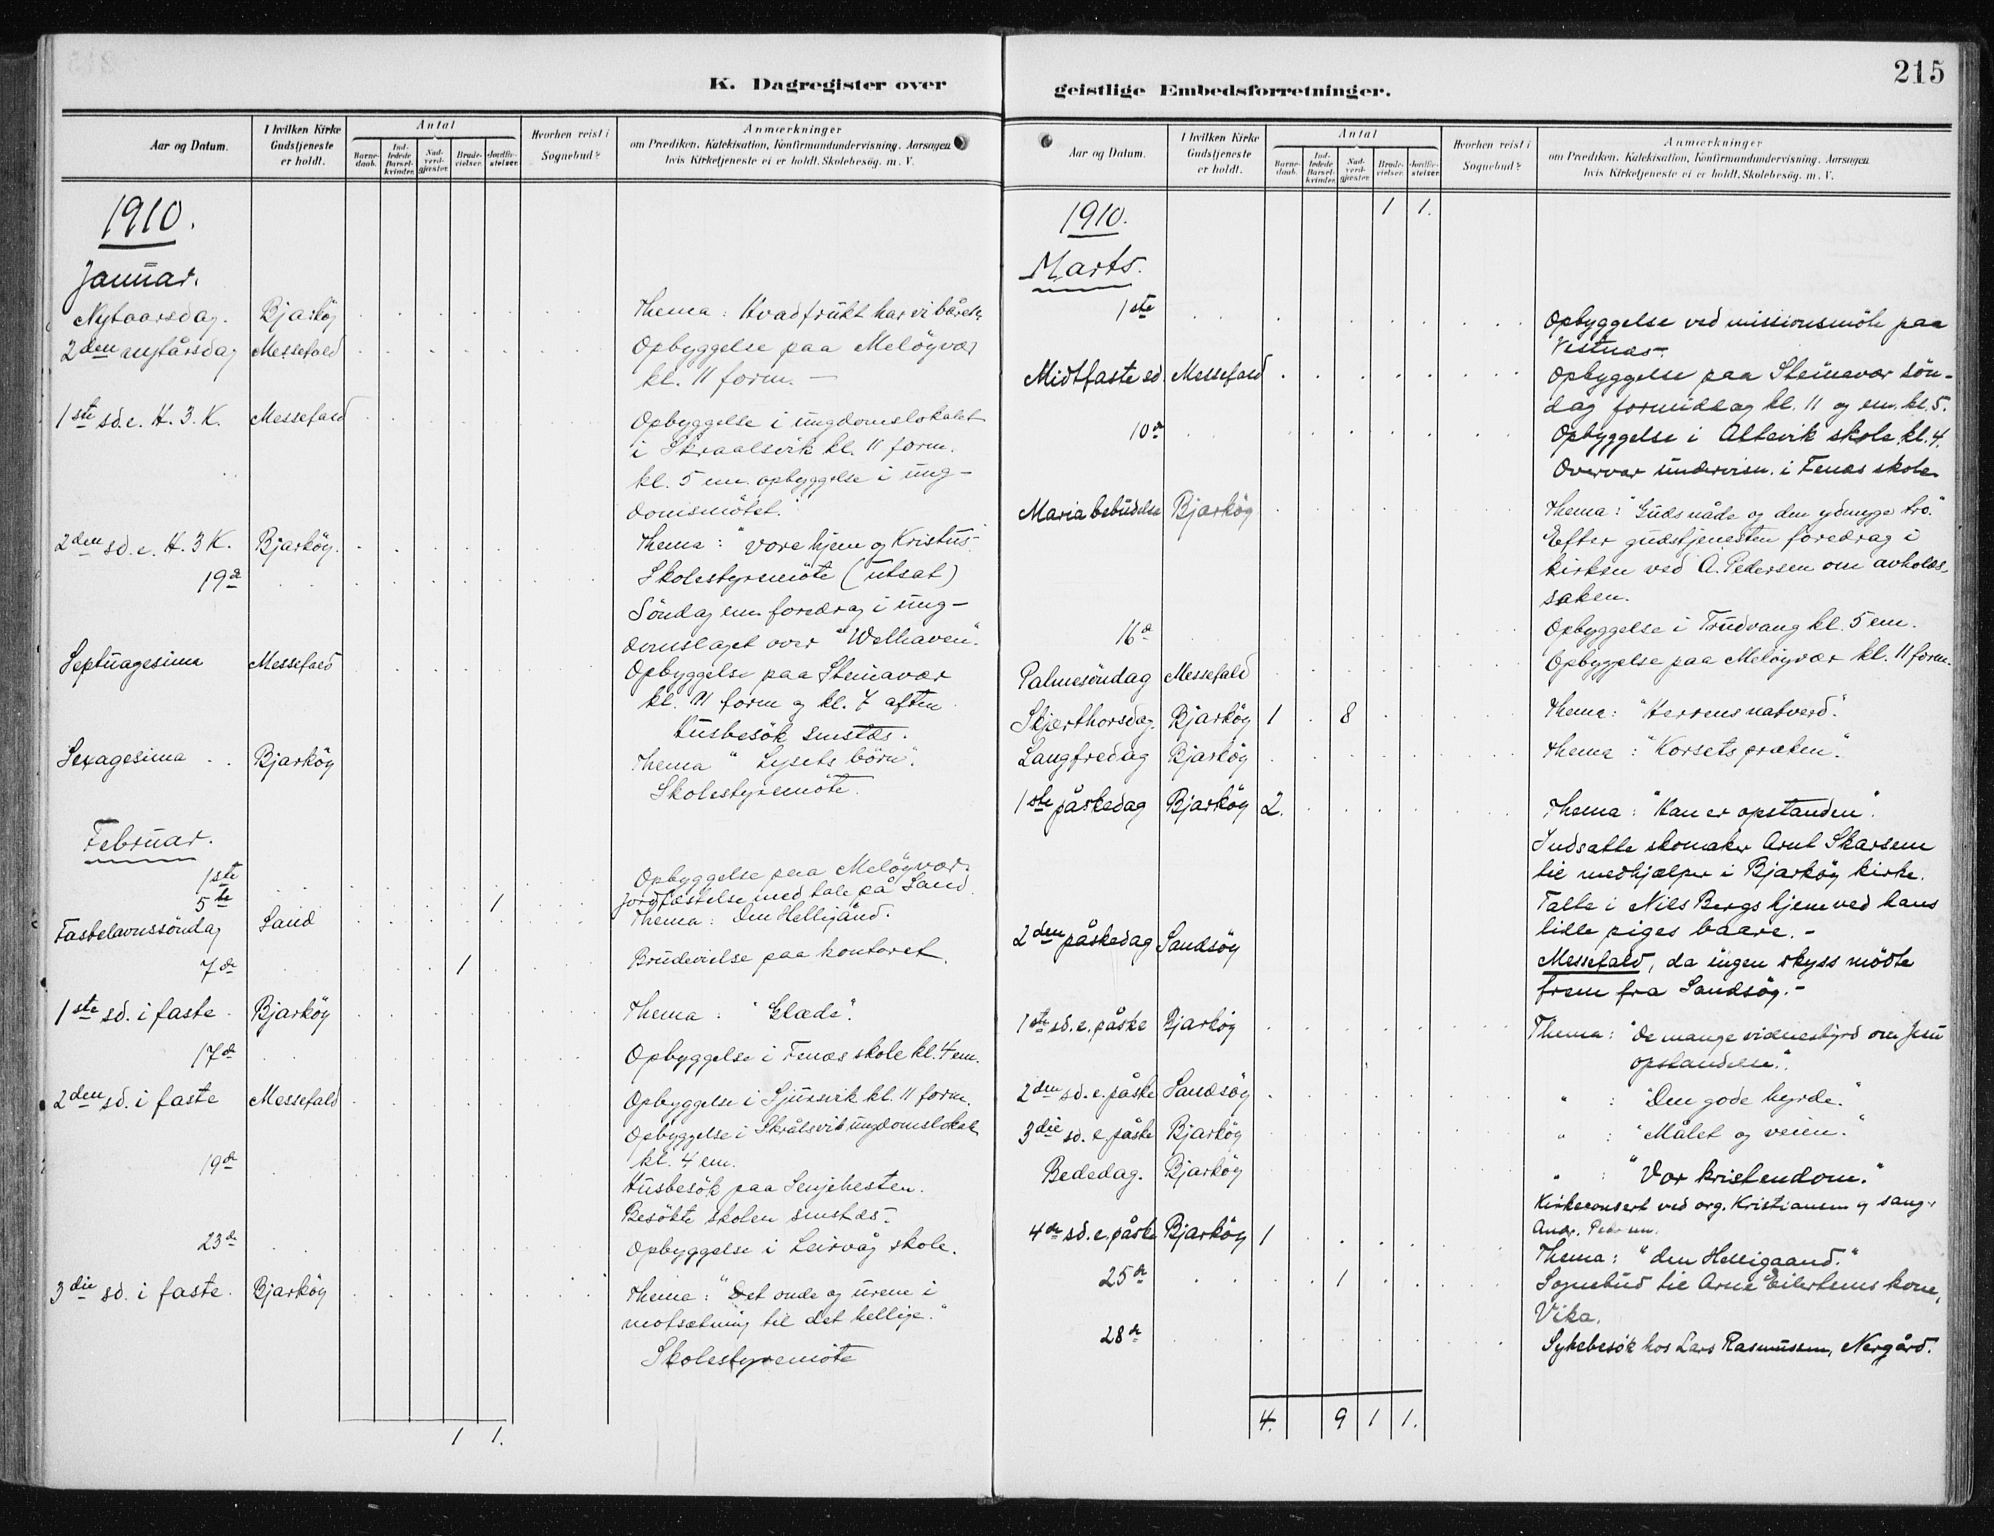 215
K. Dagregister over
Aar og Datum. I hvilken Kirke Gudstjeneste er holdt. Antal Barne-daab. Ind-ledede Barsel-kvinder. Nad-verd-gjæster. Brude-vielser. Jordfæ-stelser. Hvorhen reist i Sognebud? Anmærkninger om Prædiken, Katekisation, Konfirmandundervisning, Aarsagen hvis Kirketjeneste ei er holdt, Skolebesøg, m. V.
1910.
Januar.
Nytaarsdag. Bjarköy Thema: Hvad frukt har vi båret
2den nytårsdag Messefald Opbyggelse paa Meløyvær
kl. 11 form. —
1ste sd. e. H. 3. K. Messefald Opbyggelse i ungdomslokalet
i Skraalsvik kl. 11 form.
kl. 5 em. opbyggelse i ung-
domsmötet.
2den sd. e. H. 3 K. Bjarköy. Thema: "Vore hjem og Kristus".
19de Skolestyremöte (utsat)
Söndag em. foredrag i ung-
domslaget over "Welhaven".
Septuagesima Messefald Opbyggelse paa Steinavær
kl. 11 form og kl. 7 aften
Husbesök smstds.
Sexagesima Bjarköy Thema "Lysets börn".
Skolestyremöte.
Februar.
1ste Opbyggelse paa Melöyvær.
5te 1 Jordfæstelse med tale på Sand.
Fastelavnssöndag Sand Thema: Den Helligånd.
7de 1 Brudevielse paa kontoret.
1ste sd. i faste Bjarköy Thema: "Glæde".
17de Opbyggelse i Fenæs skole kl. 4 em.
2den sd. i faste Messefald Opbyggelse i kl. 11 form.
Opbyggelse i Skrålsvik ungdomslokale
kl. 4 em.
19de Husbesök paa Senjehesten.
Besökte skolen smstds.
23de Opbyggelse i Leirvåg skole.
3die sd. i faste Bjarköy Thema: "Det onde og urene i
motsætning til det hellige."
Skolestyremöte
1 1.
geistlige Embedsforretninger.
Aar og Datum. I hvilken Kirke Gudstjeneste er holdt. Antal Barne-daab. Ind-ledede Barsel-kvinder. Nad-verd-gjæster. Brude-vielser. Jordfæ-stelser. Hvorhen reist i Sognebud? Anmærkninger om Prædiken, Katekisation, Konfirmandundervisning, Aarsagen hvis Kirketjeneste ei er holdt, Skolebesøg, m. V.
1 1.
1910.
Marts.
1ste Opbyggelse ved missionsmöte paa
Vestnæs.
Midtfaste sd. Messefald Opbyggelse paa Steinavær sön-
dag formiddag kl. 11 og em. kl. 5.
10de Opbyggelse i Altevik skole kl. 4.
Overvar undervisn. i Fenæs skole
Maria bebudelse Bjarköy Thema: "Guds nåde og den ydmyge tro".
Efter gudstjenesten foredrag i
kirken ved A. Pedersen om avholds-
saken.
16de Opbyggelse i Trudvang kl. 5 em.
Palmesöndag Messefald Opbyggelse paa Meløyvær kl. 11 form.
Skjærthorsdag. Bjarköy 1 8 Thema: "Herrens natverd."
Langfredag Bjarköy Thema: "Korsets præken".
1ste påskedag Bjarköy 2. Thema: "Han er opstanden".
Indsatte skomaker Arnt Skarsem
til medhjælper i Bjarköy kirke.
Talte i Nils Bergs hjem ved hans
lille piges baare. -
2den påskedag Sandsöy Messefald, da ingen skyss mödte
frem fra Sandsöy. -
1ste sd. e. påske Bjarköy Thema: "De mange vidnesbyrd om Jesu
opstandelse."
2den sd. e. påske Sandsöy " : "Den gode hyrde."
3die sd. e. påske Bjarköy " : "Målet og veien."
Bededag. Bjarköy " : "Vor kristendom."
Kirkeconsert ved org. Kristiansen og sang.
Andr. Pedersen.
4de sd. e. påske Bjarköy 1 Thema: "den Helligaand."
25de 1 Sognebud til Arne Eilertsens kone,
Vika.
28de Sykebesök hos Lars Rasmussen, Nergård.
4. 9 1 1.